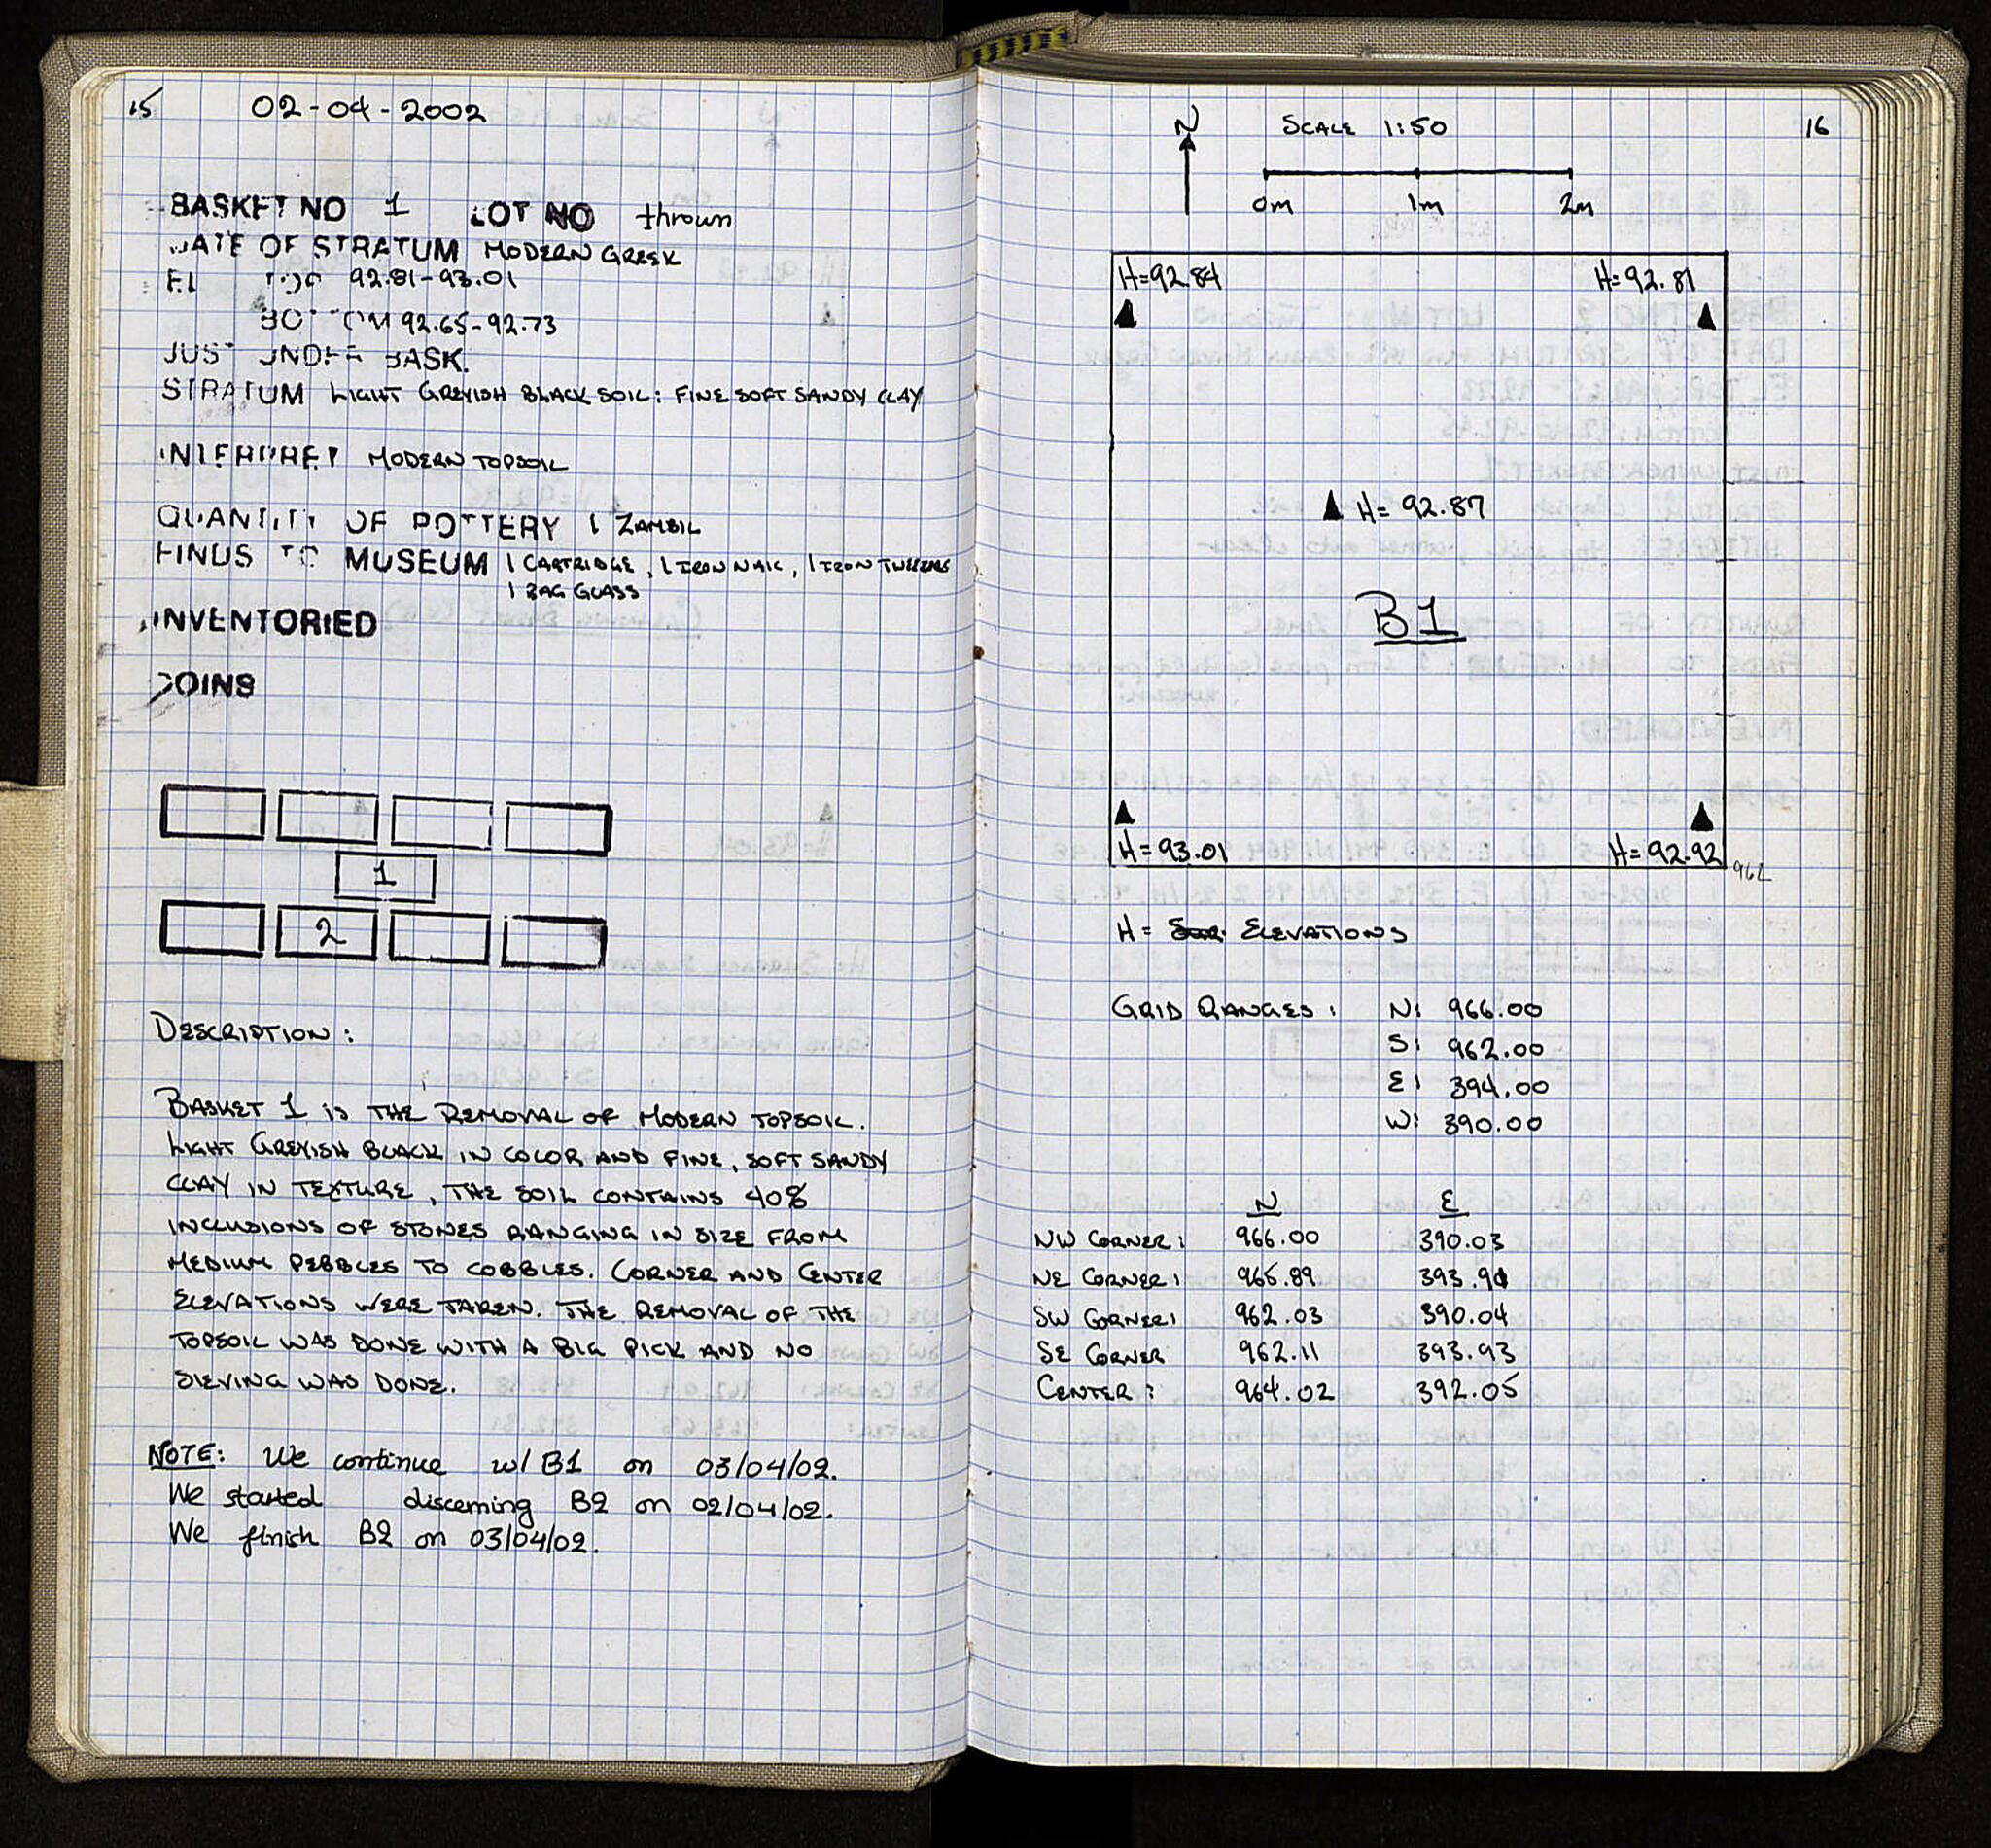 15
02-04-2002
BASKET NO 1 LOT NO thrown
DATE OF STRATUM MODERN GREEK
EL TOP 92.81-93.01
BOTTOM 92.65-92.73
JUST UNDER BASK.
STRATUM LIGHT GREYISH BLACK SOIL: FINE SOFT SANDY CLAY
INTERPRET MODERN TOPSOIL
QUANTITY OF POTTERY 1 ZAMBIL
FINDS TO MUSEUM 1 CARTRIDGE, 1 IRON NAIL, 1 IRON TWEEZERS
1 BAG GLASS
INVENTORIED
COINS
1
2
DESCRIPTION:
BASKET 1 IS THE REMOVAL OF MODERN TOPSOIL.
LIGHT GREYISH BLACK IN COLOR AND FINE, SOFT SANDY
CLAY IN TEXTURE, THE SOIL CONTAINS 40%
INCLUSIONS OF STONES RANGING IN SIZE FROM
MEDIUM PEBBLES TO COBBLES. CORNER AND CENTER
ELEVATIONS WERE TAKEN. THE REMOVAL OF THE
TOPSOIL WAS DONE WITH A BIG PICK AND NO
SIEVING WAS DONE.
NOTE: We continue w/ B1 on 03/04/02.
We started discerning B2 on 02/04/02.
We finish B2 on 03/04/02.
16
N SCALE 1:50
0m 1m 2m
H=92.84 H=92.81
H=92.87
B1
H=93.01 H=92.92
H= ELEVATIONS
GRID RANGES: N: 966.00
S: 962.00
E: 394.00
W: 390.00
N E
NW CORNER: 966.00 390.03
NE CORNER: 965.89 393.91
SW CORNER: 962.03 390.04
SE CORNER 962.11 393.93
CENTER: 964.02 392.05